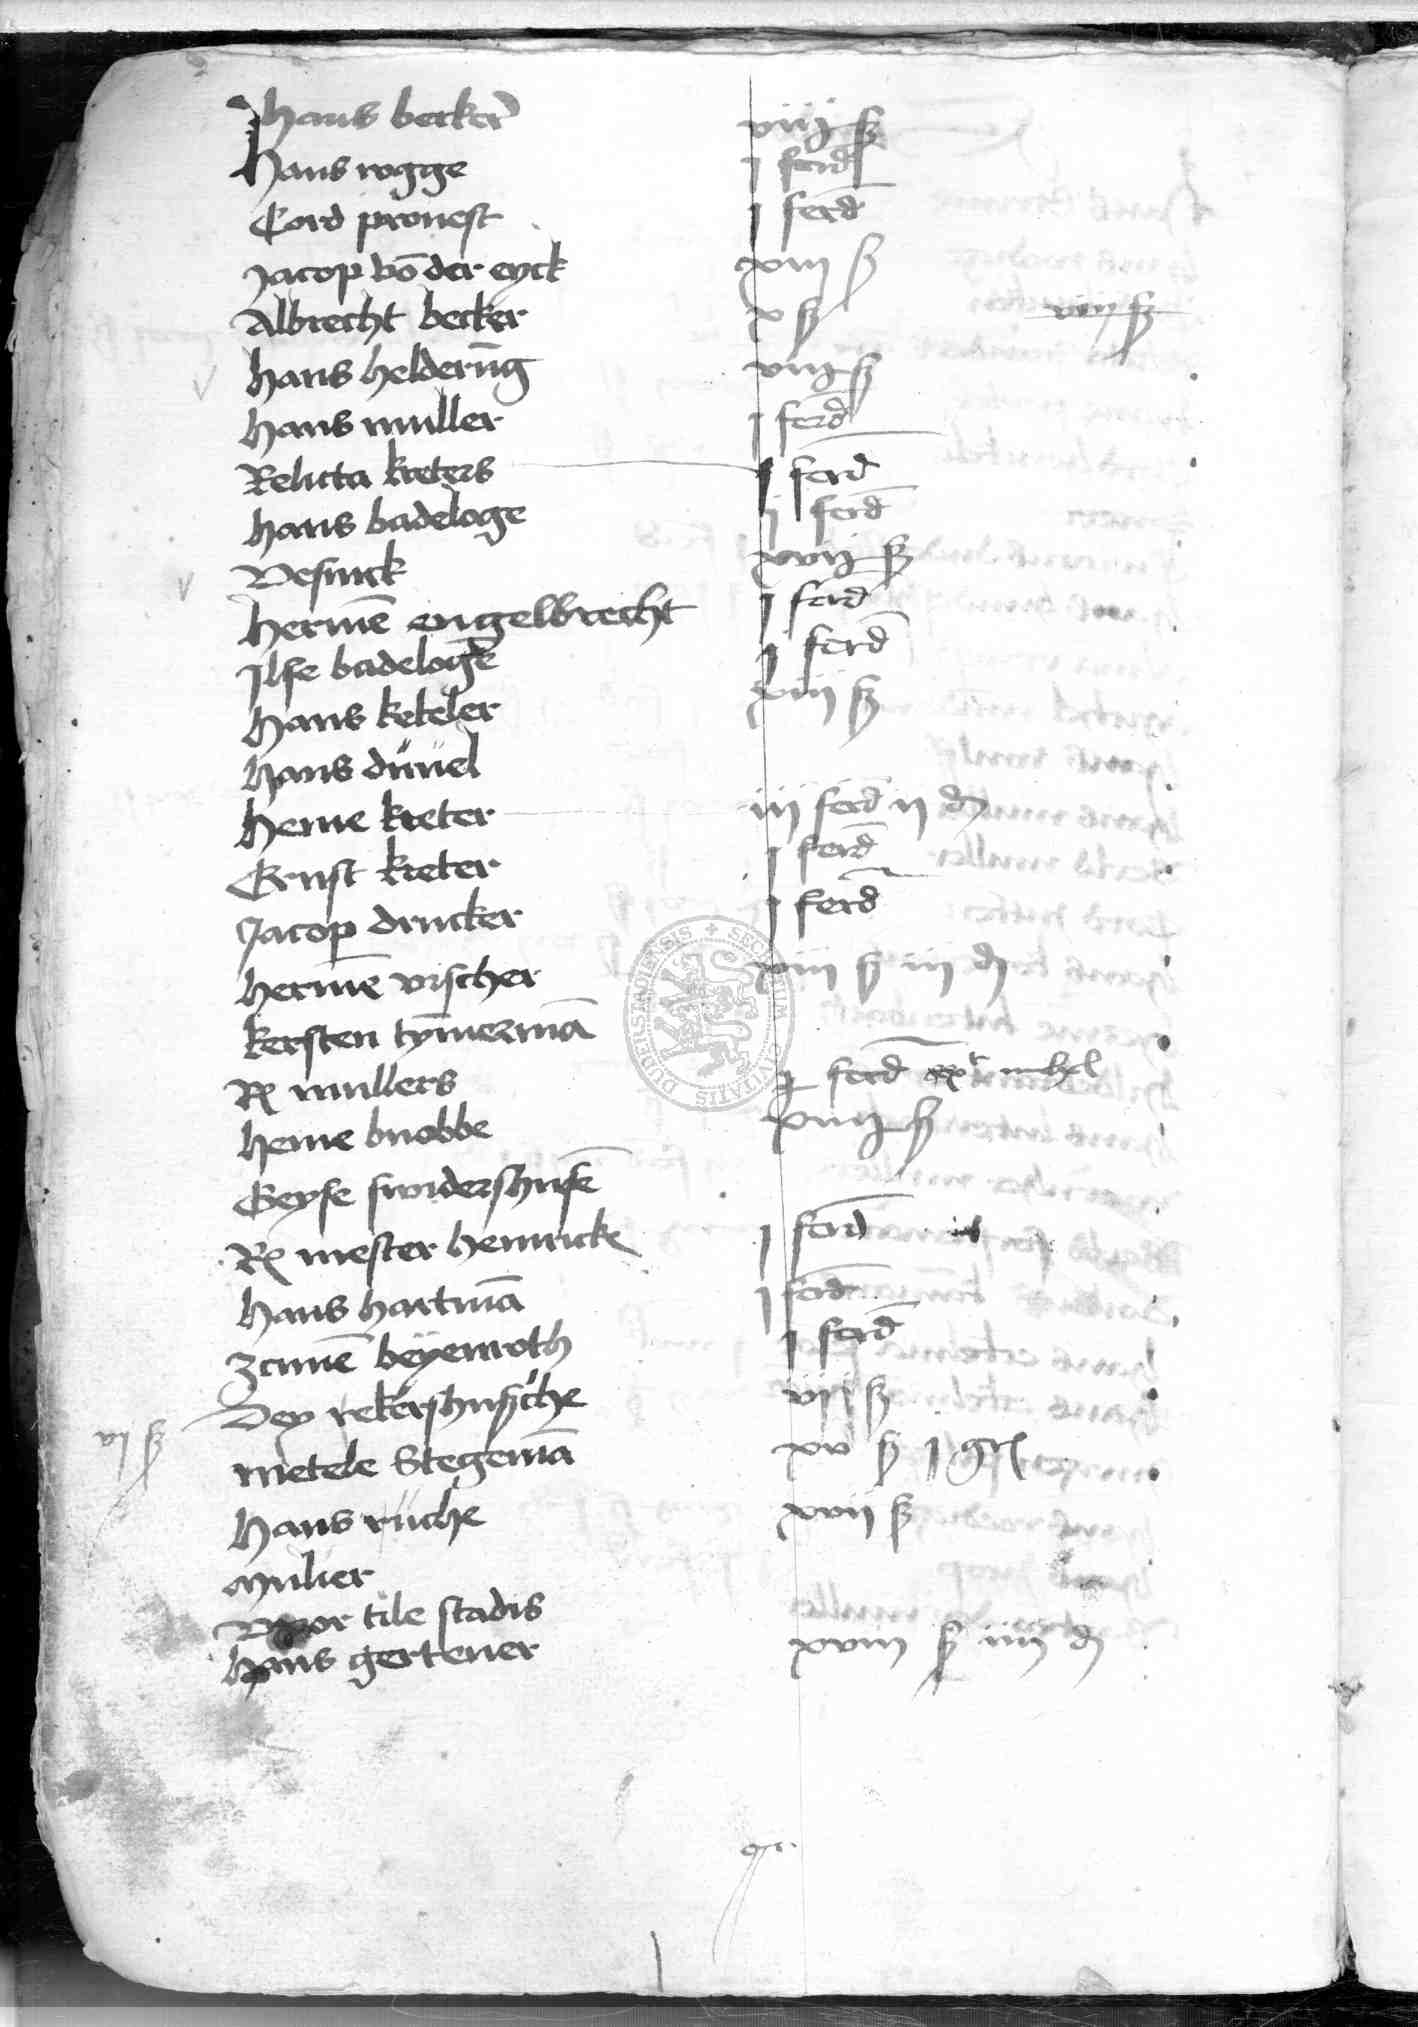 Hans becker viiij ß
Hans rogge j ferd
Cord pronest j ferd
Jacop võ der eyck xiiij ß
Albrecht becker x ß viiij ß
hans helderũg viij ß
hans muller j ferd
Relicta kreters j ferd
hans badeloge ij ferd
Desinck xvij ß
hermẽ engelbrecht j ferd
Ilse badeloge j ferd
Hans keteler xiiij ß
Hans düuel
heine kreter iij ferd ij d
Ernst kreter j ferd
Jacop drucker j ferd
hermẽ vischer xiiij ß iij d
kersten tỹmermã
Rx mullers ferd
heine knobbe xiiij ß
Geyse swidershusẽ
Rx mester henricke j ferd
hans hartmã j ferd
beyenroth j ferd
Dey rekershusche vij ß
vj ß metele Stegemã xv ß j
Hans rüche xvij ß
mulier
tile stadis
hans gertener xviij ß iiij d
SECRETUM CIVITATIS DUDERSTADIENSIS